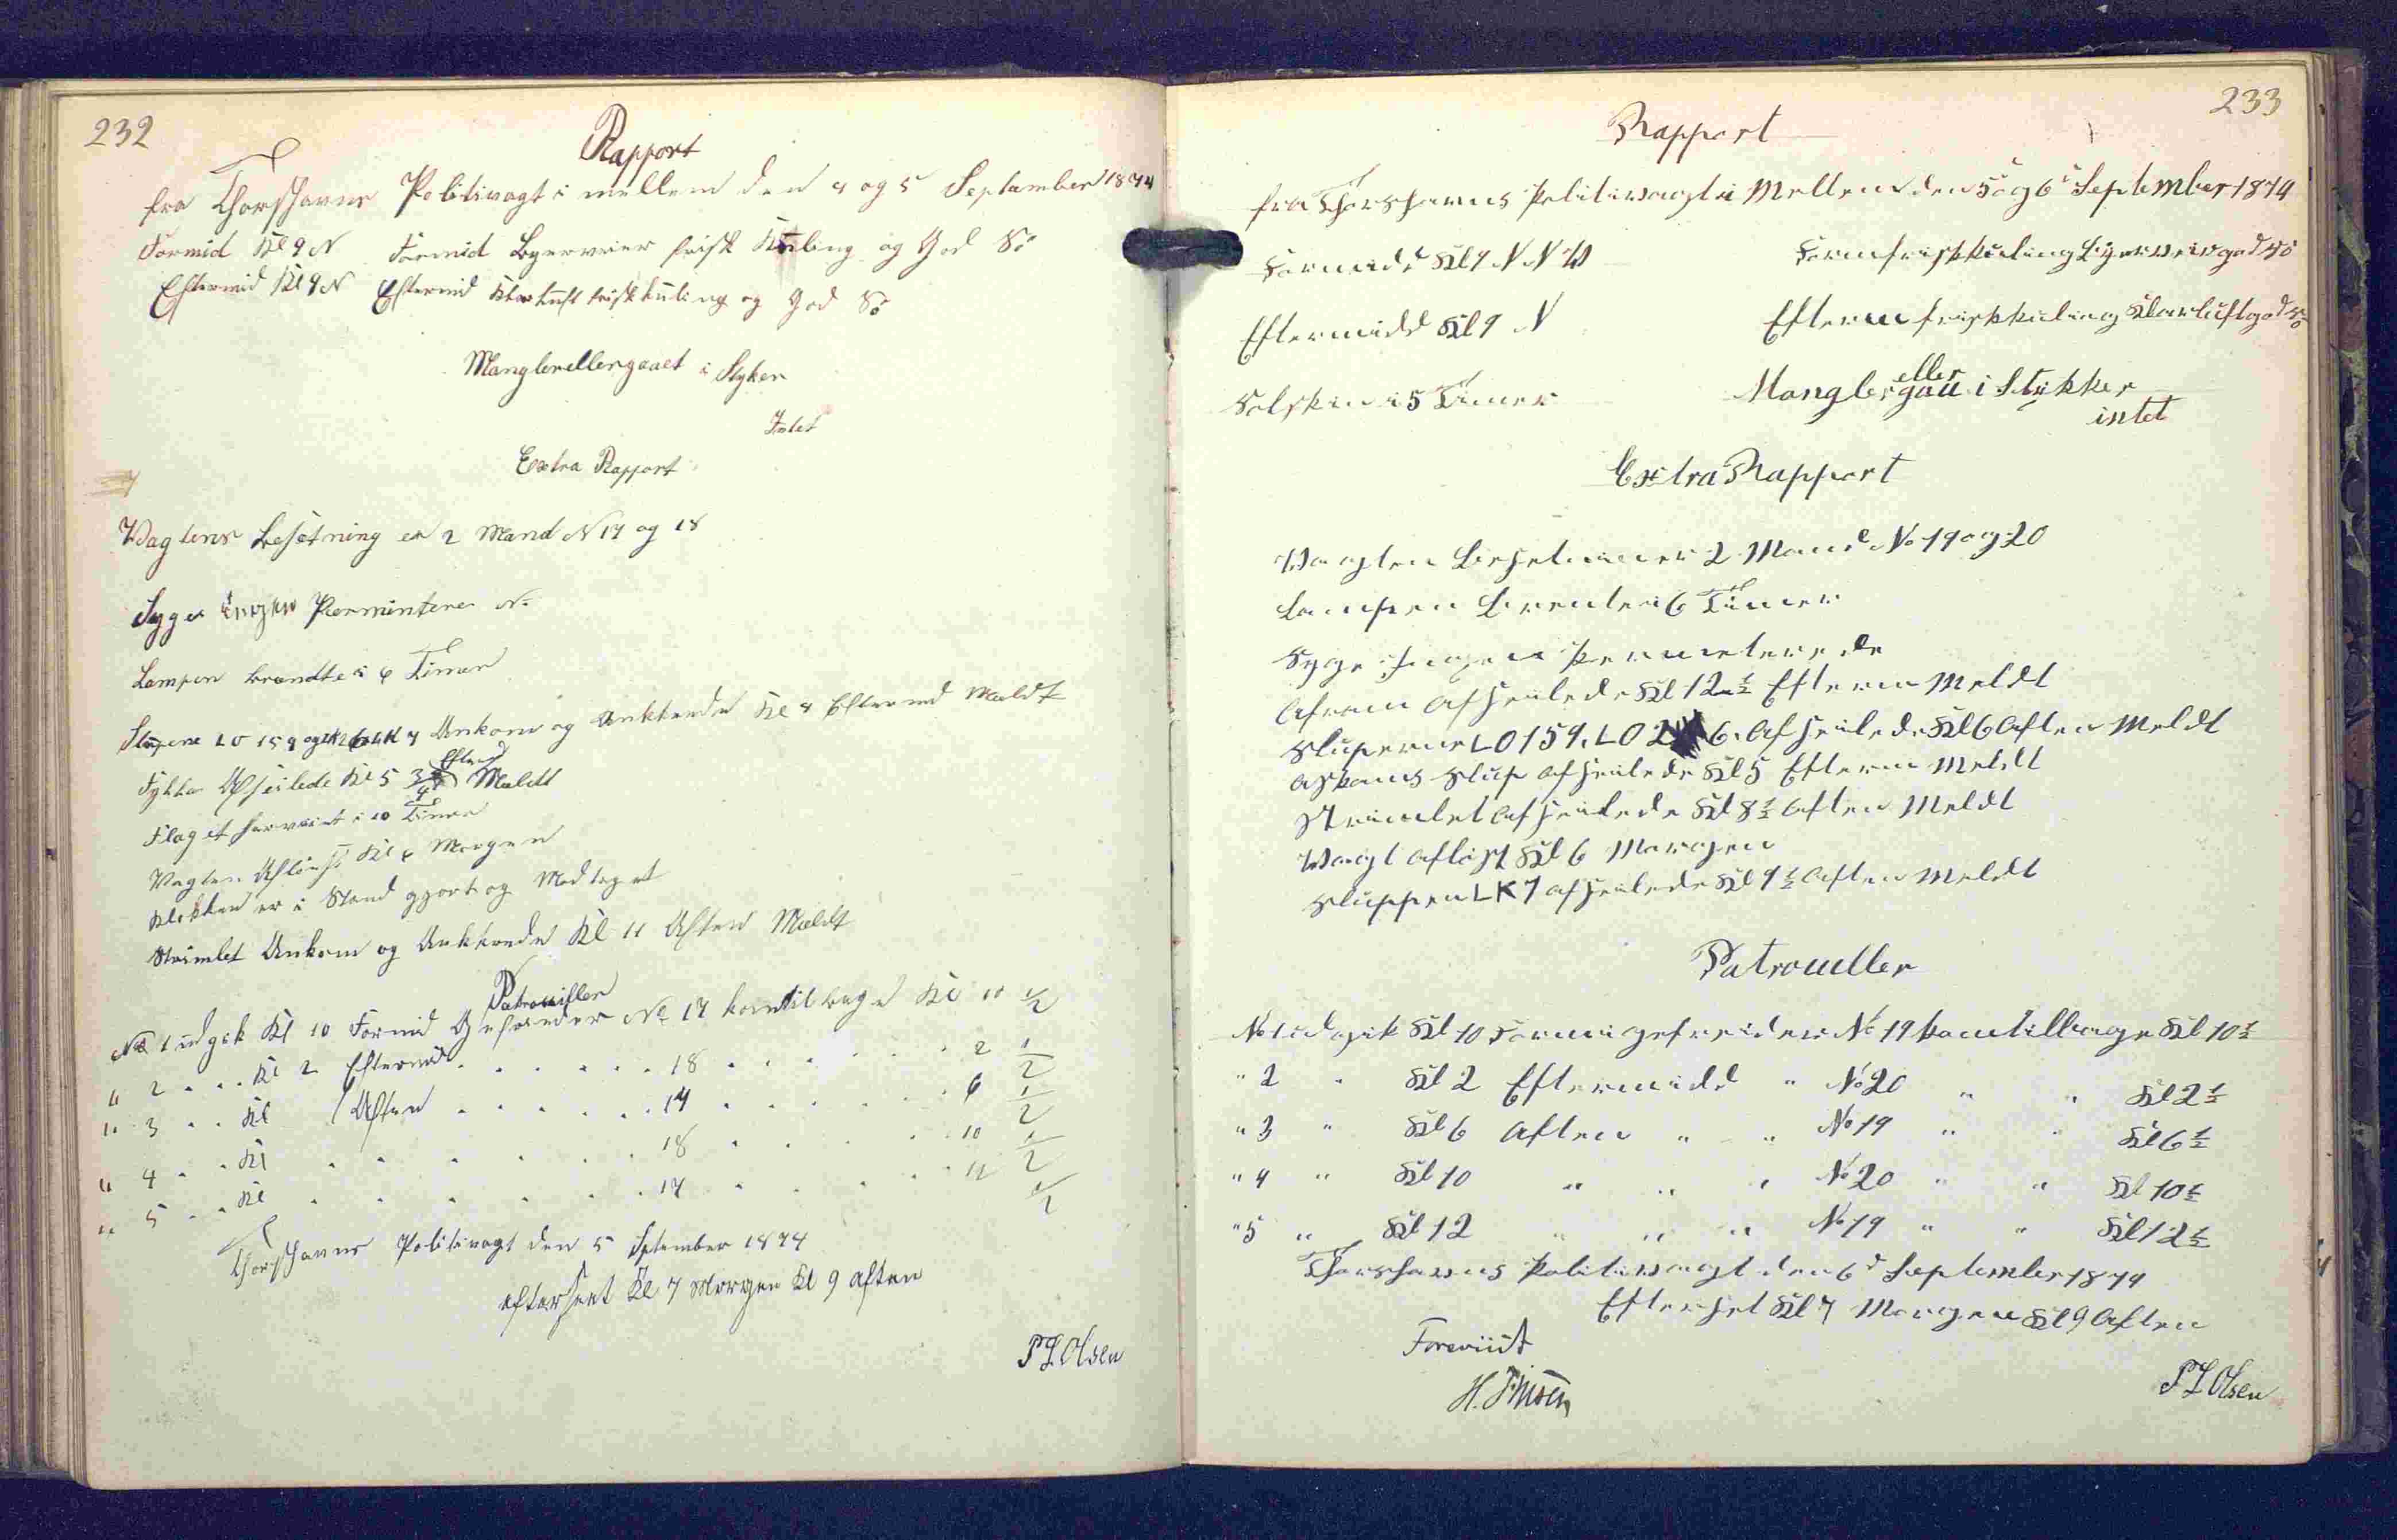 232
Rapport
fra Thorshavns Politivagt i mellem den 4 og 5 September 1874
Formid Kl 9 N Formid Byerveier frisk Kuling og God Sö
Eftermid Kl 9 N Eftermid Klarluft frisk kuling og God Sö
Manglerellergaaet i Styker
Intet
Extra Rapport
Vagtens Besetning er 2 Mand N 17 og 18
Syge Ingen Permintere N
Lampen brendte i 6 Timer
Slupene LO 159 og Ankom og Ankrede Kl 4 Eftermid Meldt
Afseilede Kl 5 3/4 Efterm Meldt
Flaget har vaiet i 10 Timer
Vagten Aflöist Kl 6 Morgen
er i Stand gjort og Modtaget
Streimlet Ankom og Ankrede Kl 11 Aften Meldt
Patrouiller
No 1 udgik Kl 10 Formid Gefreider No 17 kom tilbage Kl 10 1/2
" 2 " " Kl 2 Eftermid 18 2 1/2
" 3 " " Kl Aften 17 6 1/2
" 4 " " Kl 18 10 1/2
" 5 " " Kl 17 12 1/2
Thorshavns Politivagt den 5 September 1874
efterseet Kl 7 Morgen Kl 9 aften
P L Olsen
233
Rapport
fra Thorshavns Politivagt i Mellem den 5 og 6 September 1874
Formidd Kl 9 N N W Form frisk kuling Byerveir god Sö
Eftermidd Kl 9 N Efterm frisk kuling Klarluft god Sö
Solskin i 5 Timer Mangler eller gaaet i Stykker
intet
Extra Rapport
Vagten Besetninner 2 Mand No 19 og 20
Lampen Brente i 6 Timer
Syge Ingen Permeterede
afseilede Kl 12 1/2 Efterm Meldt
Sluperne LO 159. LO 2 6. Afseilede Kl 6 Aften Meldt
Askams Slup afseilede Kl 5 Efterm Meldt
Streimlet Afseilede Kl 8 1/2 Aften Meldt
Vagt aflöst Kl 6 Morgen
Sluppen LK 7 afseilede Kl 9 1/2 Aften Meldt
Patrouller
No 1 udgik Kl 10 Formi gefreider No 19 kom tilbage Kl 10 1/2
" 2 " Kl 2 Eftermidd " No 20 " " Kl 2 1/2
" 3 " Kl 6 Aften " " No 19 " " Kl 6 1/2
" 4 " Kl 10 " " " No 20 " " Kl 10 1/2
" 5 " Kl 12 " " " No 19 " " Kl 12 1/2
Thorshavns Politivagt den 6d September 1874
Efterset Kl 7 Morgen Kl 9 Aften
Foreviist
P L Olsen